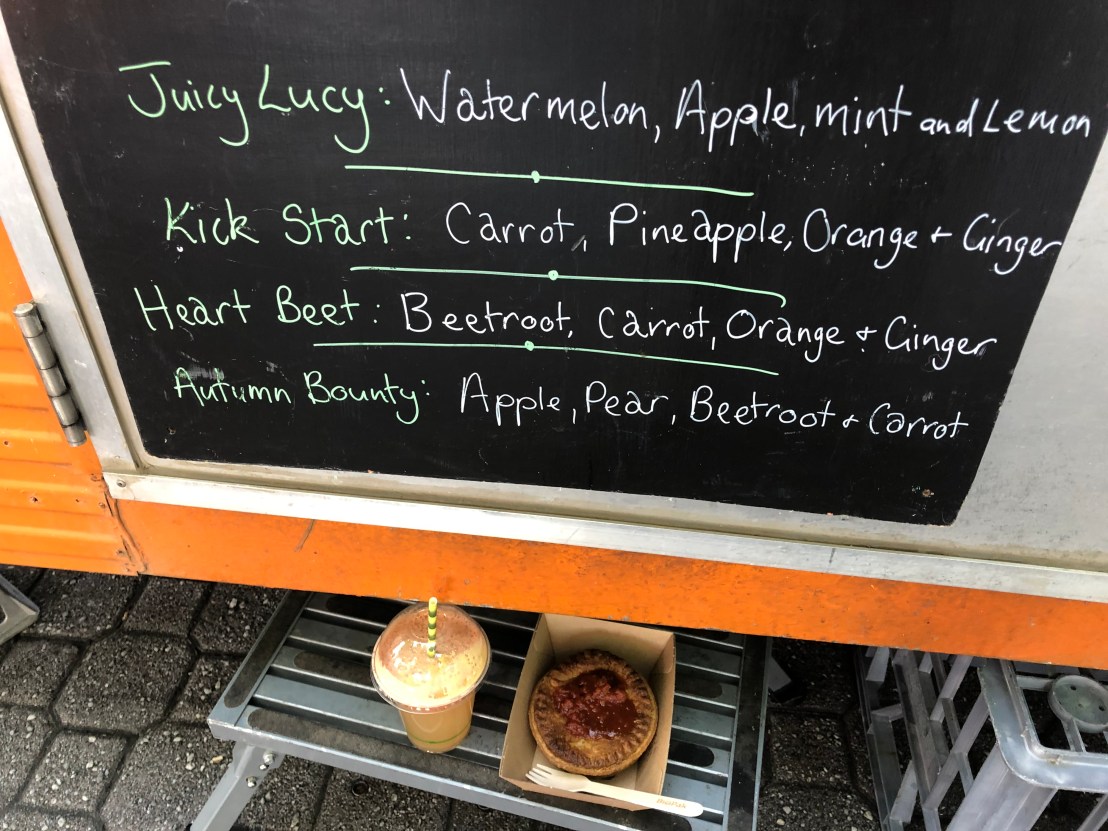 Juicy Lucy: Watermelon, Apple, mint and Lemon
Kick Start: Carrot, Pineapple, Orange + Ginger
Heart Beet: Beetroot, Carrot, Orange + Ginger
Autumn Bounty: Apple, Pear, Beetroot + Carrot